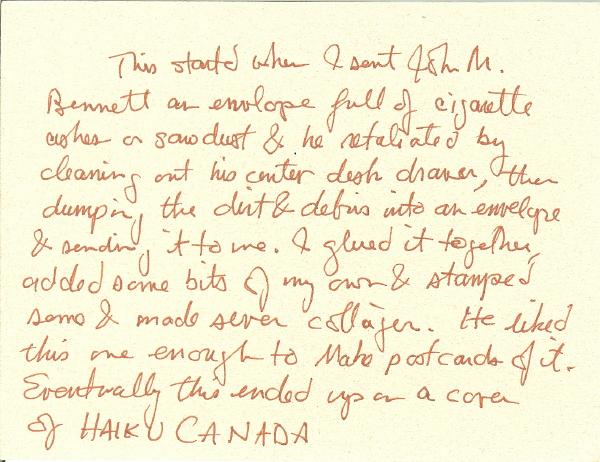 This started when I sent John M.
Bennett an envelope full of cigarette
ashes or sawdust & he retaliated by
cleaning out his center desk drawer, then
dumping the dirt & debris into an envelope
& sending it to me. I glued it together,
added some bits of my own & stamped
some & made seven collages. He liked
this one enough to make postcards of it.
Eventually this ended up on a cover
of HAIKU CANADA